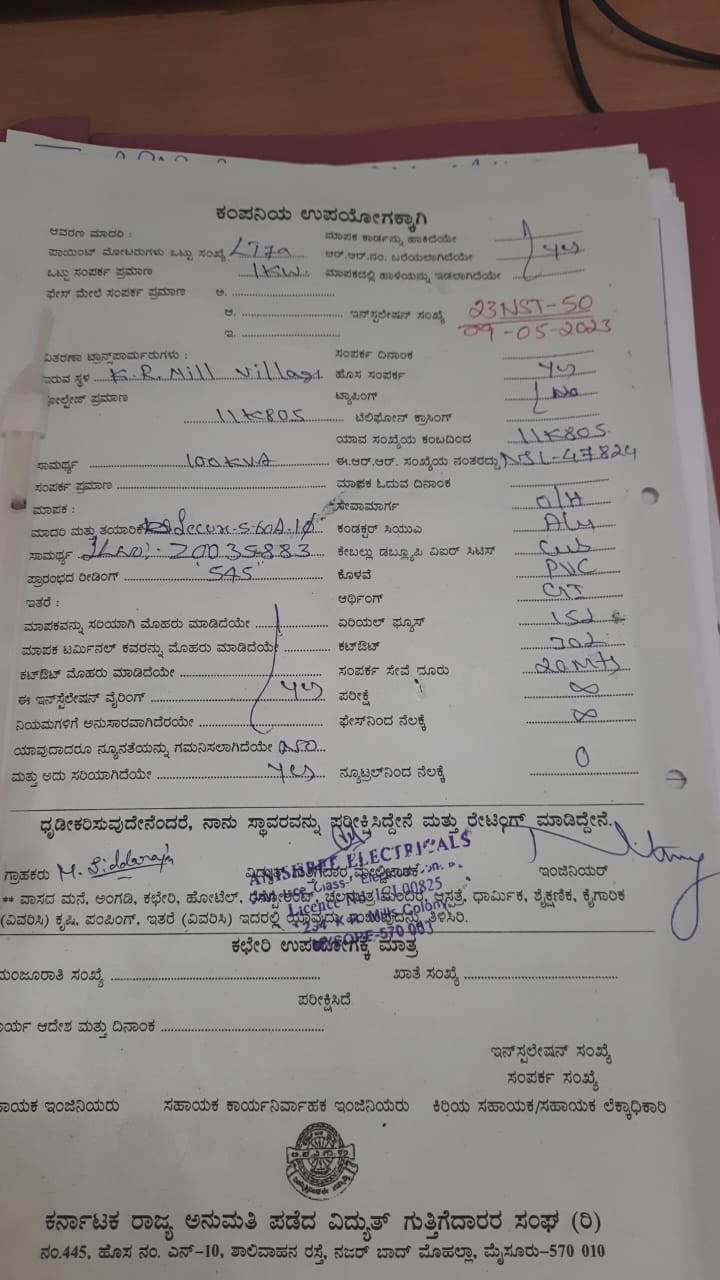 ಕಂಪನಿಯ ಉಪಯೋಗಕ್ಕಾಗಿ
ಆವರಣ ಮಾದರಿ : ಮಾಪಕ ಕಾರ್ಡನ್ನು ಹಾಕಿದೆಯೇ
ಪಾಯಿಂಟ್ ಮೋಟರುಗಳು ಒಟ್ಟು ಸಂಖ್ಯೆ LT7a ಆರ್.ಆರ್.ನಂ. ಬರೆಯಲಾಗಿದೆಯೇ yes
ಒಟ್ಟು ಸಂಪರ್ಕ ಪ್ರಮಾಣ 1KW. ಮಾಪಕದಲ್ಲಿ ಹಾಳೆಯನ್ನು ಇಡಲಾಗಿದೆಯೇ
ಫೇಸ್ ಮೇಲೆ ಸಂಪರ್ಕ ಪ್ರಮಾಣ ಅ. ..............................
ಆ. .............................. ಇನ್‌ಸ್ಟಲೇಷನ್ ಸಂಖ್ಯೆ 23NST-50
ಇ. .............................. 09-05-2023
ವಿತರಣಾ ಟ್ರಾನ್ಸ್‌ಫಾರ್ಮರುಗಳು : ಸಂಪರ್ಕ ದಿನಾಂಕ
ಇರುವ ಸ್ಥಳ K.R.Mill Village ಹೊಸ ಸಂಪರ್ಕ yes
ವೋಲ್ಟೇಜ್ ಪ್ರಮಾಣ ಟ್ಯಾಪಿಂಗ್ No
11K805 ಟೆಲಿಫೋನ್ ಕ್ರಾಸಿಂಗ್
ಯಾವ ಸಂಖ್ಯೆಯ ಕಂಬದಿಂದ 11K805
ಸಾಮರ್ಥ್ಯ 100KVA ಈ.ಆರ್.ಆರ್. ಸಂಖ್ಯೆಯ ನಂತರದ್ದು NSL-47824
ಸಂಪರ್ಕ ಪ್ರಮಾಣ .............................. ಮಾಪಕ ಓದುವ ದಿನಾಂಕ
ಮಾಪಕ : ಸೇವಾಮಾರ್ಗ O/H
ಮಾದರಿ ಮತ್ತು ತಯಾರಿಕೆ Secur-5-60A-1Ø ಕಂಡಕ್ಟರ್ ಸಿಯುಎ Aly
ಸಾಮರ್ಥ್ಯ Sl.No:-20035883 ಕೇಬಲ್ಲು ಡಬ್ಲ್ಯೂಪಿ ವಿಐರ್ ಸಿಟಿಸ್ Cub
ಪ್ರಾರಂಭದ ರೀಡಿಂಗ್ "545" ಕೊಳವೆ PVC
ಇತರೆ : ಆರ್ಥಿಂಗ್ GI
ಮಾಪಕವನ್ನು ಸರಿಯಾಗಿ ಮೊಹರು ಮಾಡಿದೆಯೇ ಏರಿಯಲ್ ಫ್ಯೂಸ್
ಮಾಪಕ ಟರ್ಮಿನಲ್ ಕವರನ್ನು ಮೊಹರು ಮಾಡಿದೆಯೇ ಕಟ್‌ಔಟ್
ಕಟ್‌ಔಟ್ ಮೊಹರು ಮಾಡಿದೆಯೇ ಸಂಪರ್ಕ ಸೇವೆ ದೂರು 20Mts
ಈ ಇನ್‌ಸ್ಟಲೇಷನ್ ವೈರಿಂಗ್ yes ಪರೀಕ್ಷೆ ∞
ನಿಯಮಗಳಿಗೆ ಅನುಸಾರವಾಗಿದೆರಯೇ ಫೇಸ್‌ನಿಂದ ನೆಲಕ್ಕೆ ∞
ಯಾವುದಾದರೂ ನ್ಯೂನತೆಯನ್ನು ಗಮನಿಸಲಾಗಿದೆಯೇ No
ಮತ್ತು ಅದು ಸರಿಯಾಗಿದೆಯೇ yes ನ್ಯೂಟ್ರಲ್‌ನಿಂದ ನೆಲಕ್ಕೆ 0
ಧೃಡೀಕರಿಸುವುದೇನೆಂದರೆ, ನಾನು ಸ್ಥಾವರವನ್ನು ಪರೀಕ್ಷಿಸಿದ್ದೇನೆ ಮತ್ತು ರೇಟಿಂಗ್ ಮಾಡಿದ್ದೇನೆ.
ಗ್ರಾಹಕರು M. Siddaraju ವಿದ್ಯುತ್ ಗುತ್ತಿಗೆದಾರ ಮೇಲ್ವಿಚಾರಕ ಇಂಜಿನಿಯರ್
ELECTRICALS
Licence No. 1CL00825
234 K.R. Mills Colony
MYSORE-570 003
** ವಾಸದ ಮನೆ, ಅಂಗಡಿ, ಕಛೇರಿ, ಹೋಟೆಲ್, ರೆಸ್ಟೋರೆಂಟ್, ಚಲನಚಿತ್ರ ಮಂದಿರ, ಆಸ್ಪತ್ರೆ, ಧಾರ್ಮಿಕ, ಶೈಕ್ಷಣಿಕ, ಕೈಗಾರಿಕ
(ವಿವರಿಸಿ) ಕೃಷಿ, ಪಂಪಿಂಗ್, ಇತರೆ (ವಿವರಿಸಿ) ಇದರಲ್ಲಿ ಯಾವುದು ಎಂಬುದನ್ನು ತಿಳಿಸಿರಿ.
ಕಛೇರಿ ಉಪಯೋಗಕ್ಕೆ ಮಾತ್ರ
ಮಂಜೂರಾತಿ ಸಂಖ್ಯೆ .............................. ಖಾತೆ ಸಂಖ್ಯೆ ..............................
ಪರೀಕ್ಷಿಸಿದೆ
ರ್ಯ ಆದೇಶ ಮತ್ತು ದಿನಾಂಕ ..............................
ಇನ್‌ಸ್ಟಲೇಷನ್ ಸಂಖ್ಯೆ
ಸಂಪರ್ಕ ಸಂಖ್ಯೆ
ಾಯಕ ಇಂಜಿನಿಯರು ಸಹಾಯಕ ಕಾರ್ಯನಿರ್ವಾಹಕ ಇಂಜಿನಿಯರು ಕಿರಿಯ ಸಹಾಯಕ/ಸಹಾಯಕ ಲೆಕ್ಕಾಧಿಕಾರಿ
ಕರ್ನಾಟಕ ರಾಜ್ಯ ಅನುಮತಿ ಪಡೆದ ವಿದ್ಯುತ್ ಗುತ್ತಿಗೆದಾರರ ಸಂಘ (ರಿ)
ನಂ.445, ಹೊಸ ನಂ. ಎನ್-10, ಶಾಲಿವಾಹನ ರಸ್ತೆ, ನಜರ್ ಬಾದ್ ಮೊಹಲ್ಲಾ, ಮೈಸೂರು-570 010